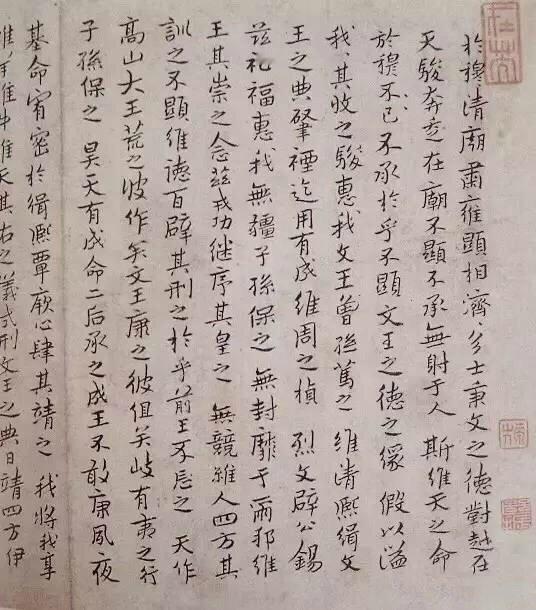 於穆清廟肅雍顯相濟〻多士秉文之德對越在
天駿奔走在廟不顯不承無射于人 斯維天之命
於穆不已不承於乎不顯文王之德之 假以溢
我〻其收之駿惠我文王曾孫篤之 維清熙緝文
王之典肇禋迄用有成維周之楨 烈文辟公錫
茲礼福惠我無疆子孫保之 無封靡于爾邦維
王其崇之念茲戎功继序其皇之 無競維人四方其
訓之不顯維德百辟其刑之於乎前王不忘之 天作
高山大王荒之彼作矣文王康之彼徂矣岐有夷之行
子孫保之 昊天有成命二后承之成王不敢康夙夜
基命宥密於緝熙覃厥心肆其靖之 我將我享
維羊維牛維天其右之義式刑文王之典日靖四方伊